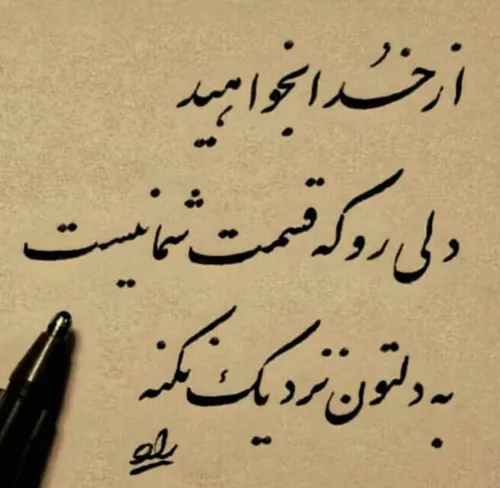 از خُدا بخواهید
دلی رو که قسمت شما نیست
به دلتون نزدیک نکنه